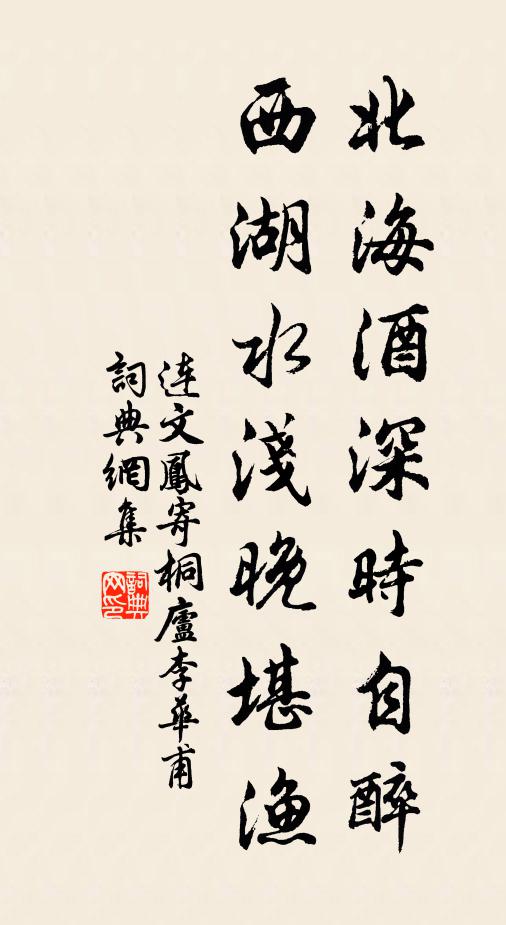 北海酒深時自醉
西湖水淺晚堪漁
連文鳳寄桐廬李華甫
詞典網集
詞典网印